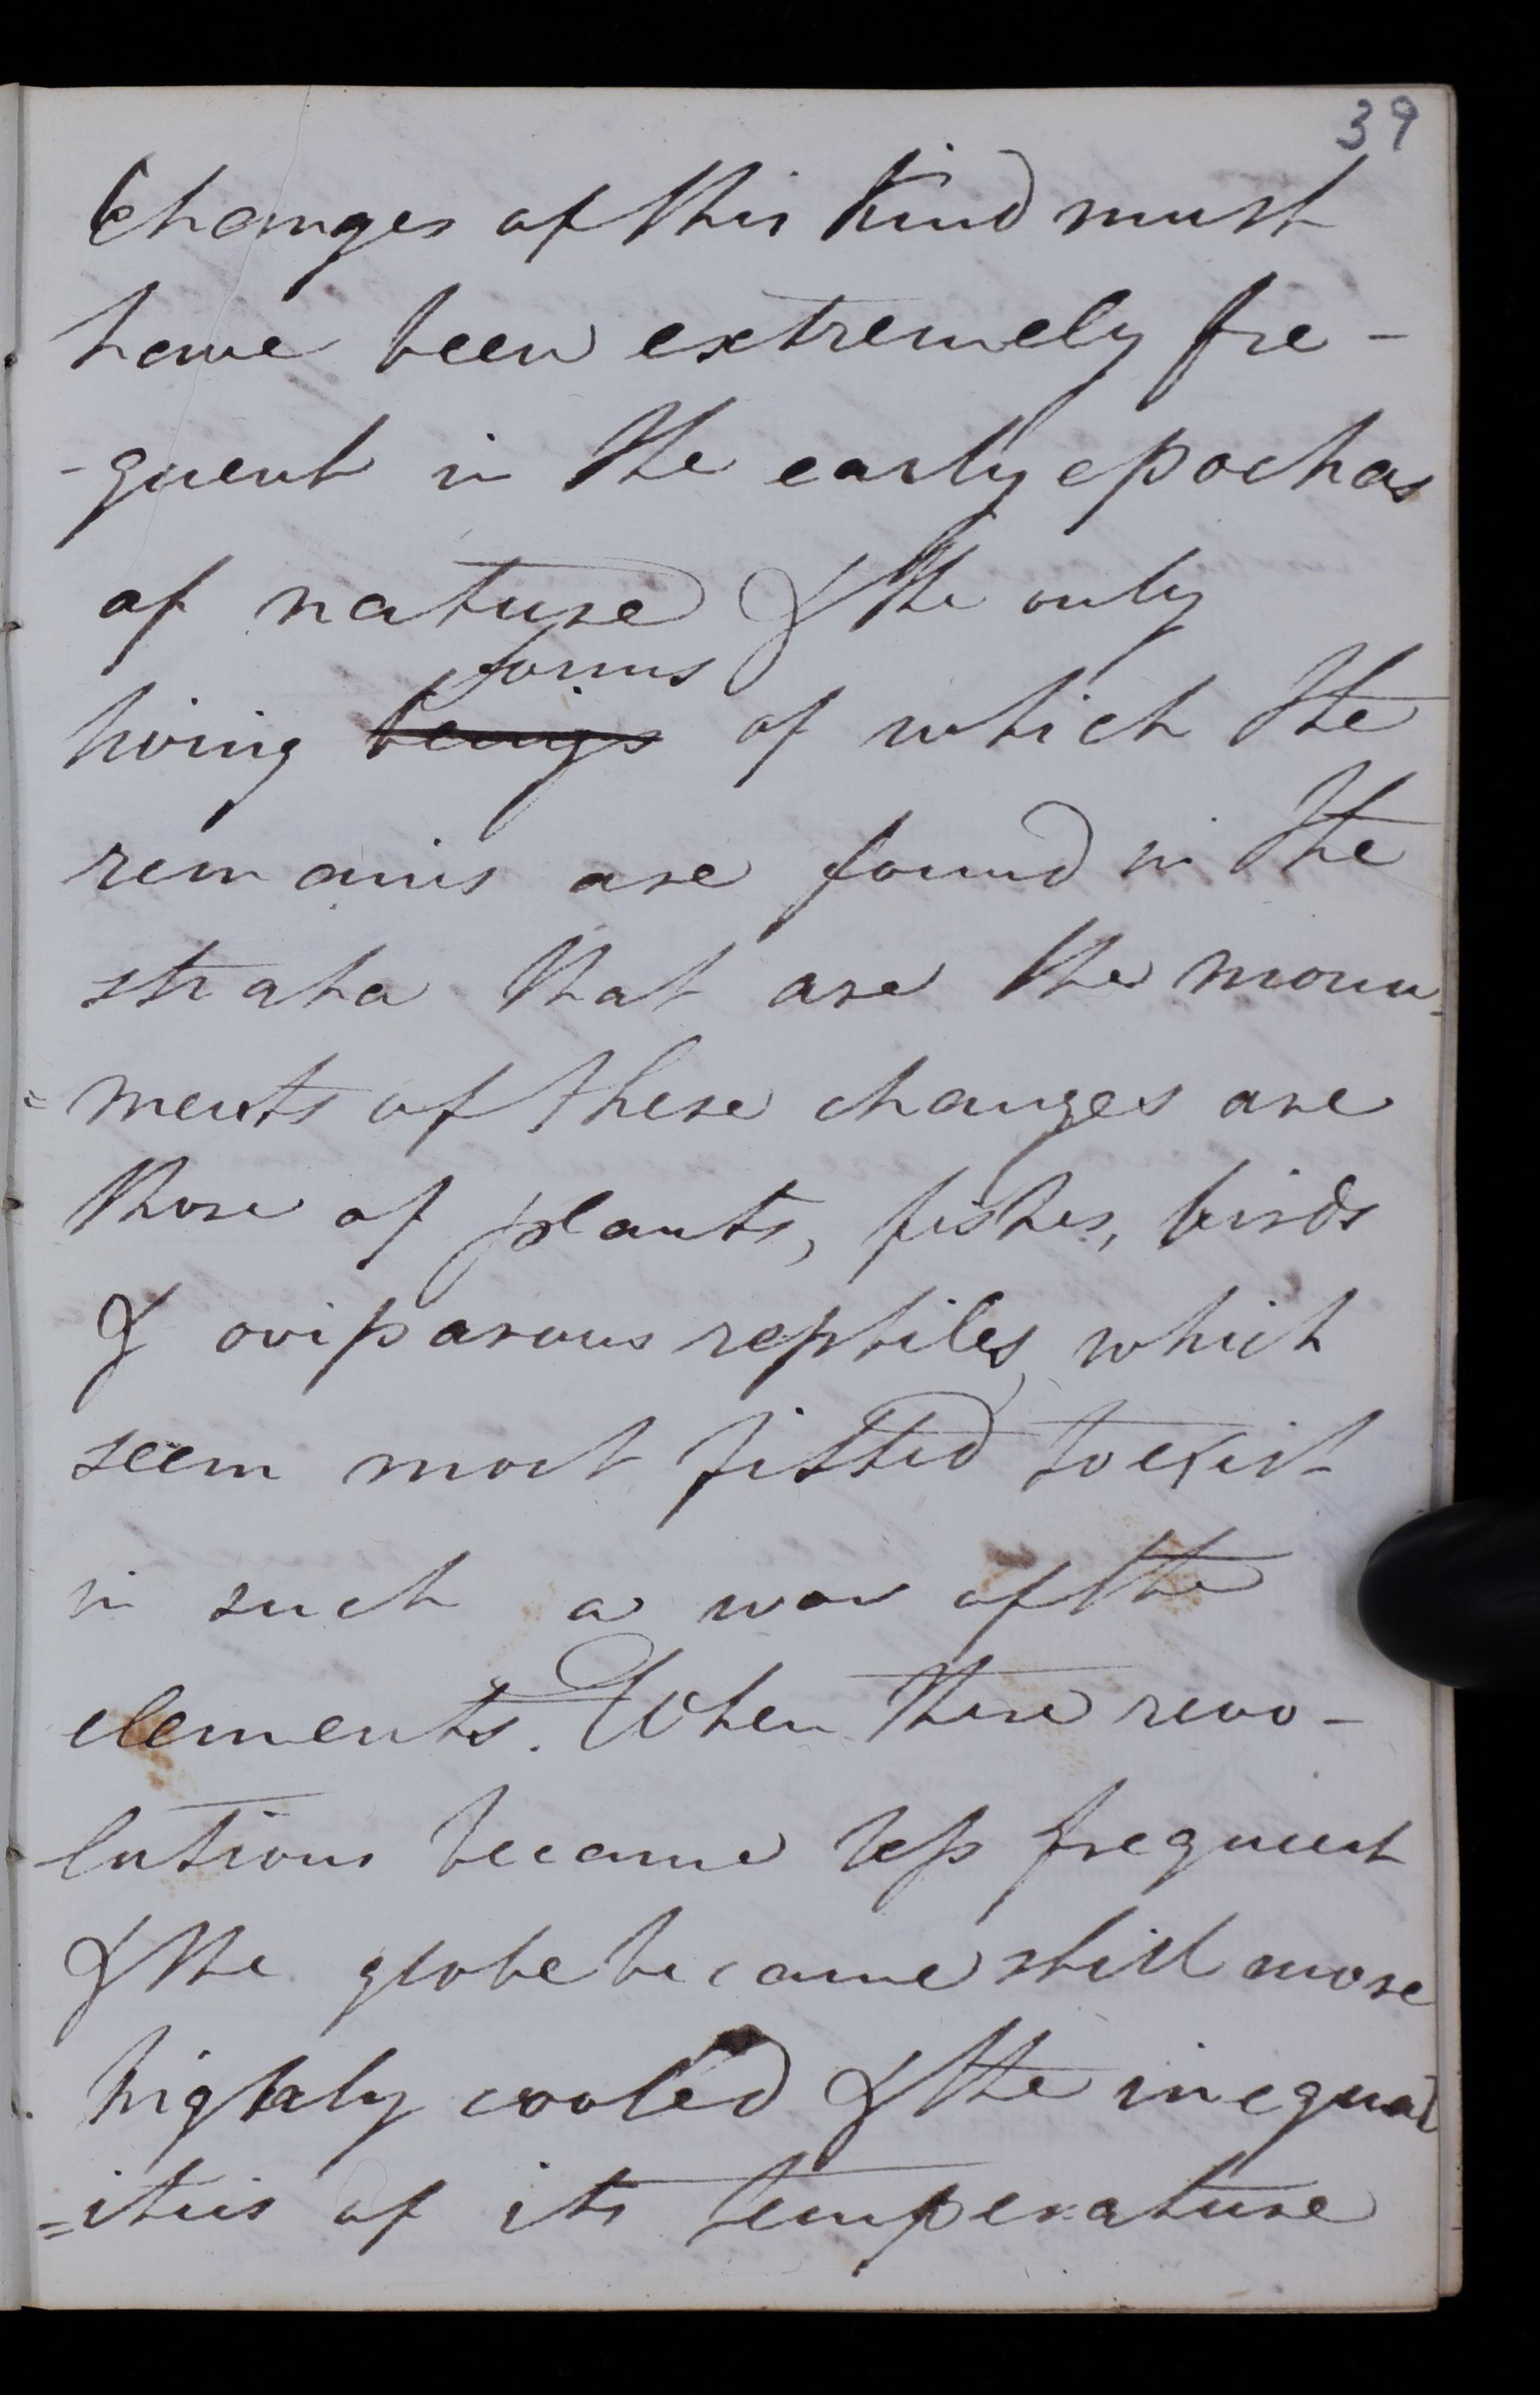 39
Changes of this kind must
have been extremely fre-
-quent in the early epochas
of nature & the only
forms
living beings of which the
remains are found in the
strata that are the monu-
=ments of these changes are
those of plants, fishes, birds
& oviparous reptiles, which
seem most fitted to exist
in such a war of the
elements. When these revo-
lutions became less frequent
& the globe became still more
highly cooled & the inequal
=ities of its temperature